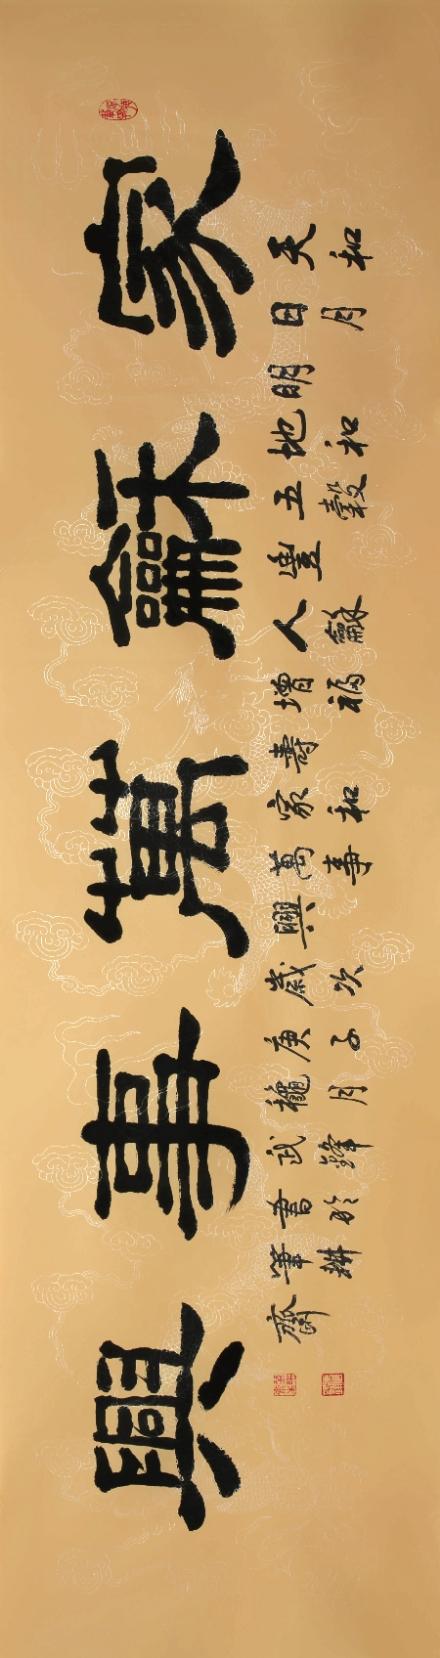 家龢萬事興
天和日月明地和五穀豐人龢福增壽家和萬事興歲次庚子穐月武鋒書於筆耕齋